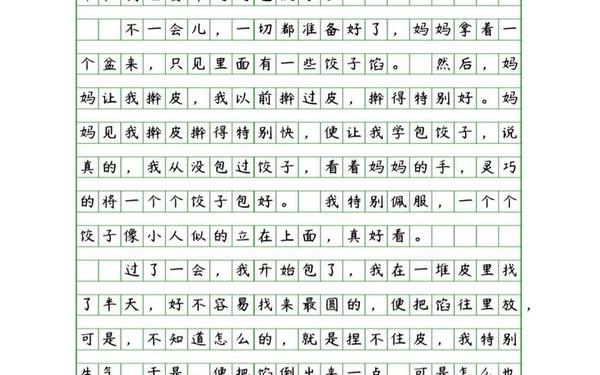 不一会儿，一切都准备好了，妈妈拿着一
个盆来，只见里面有一些饺子馅。 然后，妈
妈让我擀皮，我以前擀过皮，擀得特别好。妈
妈见我擀皮擀得特别快，便让我学包饺子，说
真的，我从没包过饺子，看着妈妈的手，灵巧
的将一个个饺子包好。 我特别佩服，一个个
饺子像小人似的立在上面，真好看。
过了一会，我开始包了，我在一堆皮里找
了半天，好不容易找来最圆的，便把馅往里放，
可是，不知道怎么的，就是捏不住皮，我特别
生气，于是，便把馅倒出来一点，可是怎么也